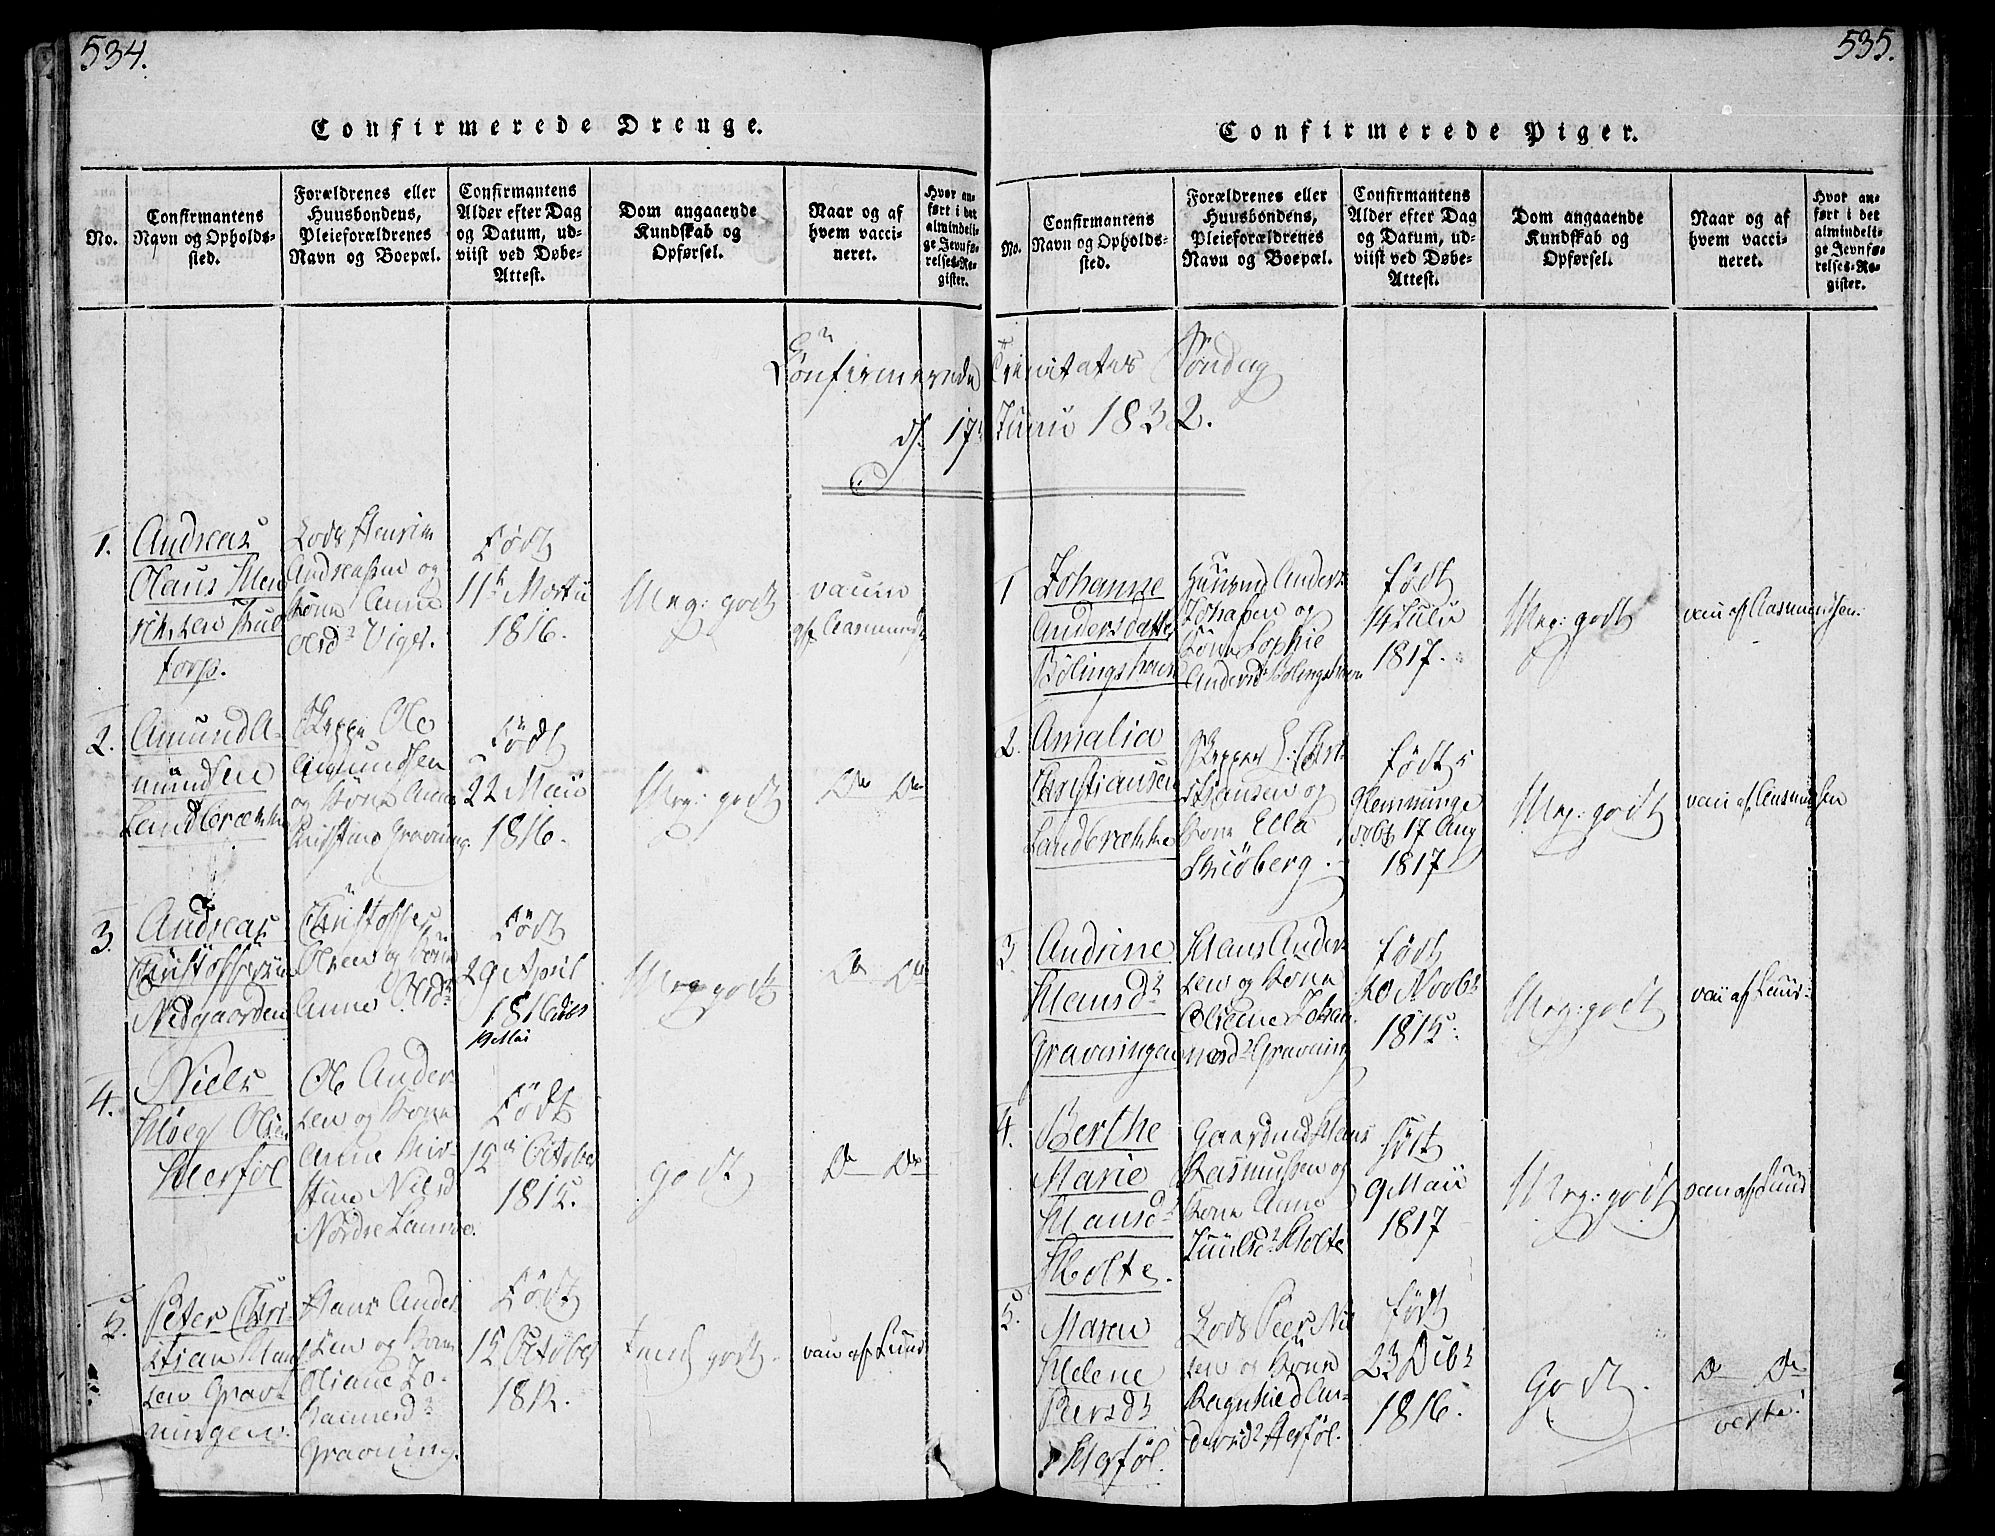 534.
Confirmerede Drenge.
No.
Confirmantens
Navn og Opholds-
sted.
Forældrenes eller
Huusbondens,
Pleieforældrenes
Navn og Boepæl.
Confirmantens
Alder efter Dag
og Datum, ud-
viist ved Døbe-
Attest.
Dom angaaende
Kundskab og
Opførsel.
Naar og af
hvem vacci-
neret.
Hvor an-
ført i det
almindeli-
ge Jevnfø-
relses-Re-
gister.
Confirmerede Trinitatis Søndag
d. 17 Junii 1832.
1.
Andreas
Olaus Hen
torp.
Lods Henrik
Andreassen og
Kone Anne
Olsd Viger.
Født
11 Martii
1816.
Meg: godt
vaccin
af Aasmunds
2.
Amund A-
mundsen
Sandbrække
Skipper Ole
Amundsen
og Kone Anne
Kristine Gravning.
Født
22 Maii
1816.
Meg: godt
Do Do
3.
Andreas
Christoffersen
Nedgaarden
Christoffer
Olsen og Kone
Anne Olsd
Født
29 April
1816
Meg godt
Do Do
4.
Niels
Høeg Olsen
Herføl
Ole Ander-
sen og Kone
Anne Kir-
stine Nielsd
Nordre Laune.
Født
12 October
1815.
godt
Do Do
5.
Peter Chri-
stian Han
sen Grav-
ningen.
Hans Ander
sen og Kone
Oliane Jo-
hannesd
Gravning.
Født
15 October
1812.
godt.
vacc af Lund
535.
Confirmerede Piger.
No.
Confirmantens
Navn og Opholds-
sted.
Forældrenes eller
Huusbondens,
Pleieforældrenes
Navn og Boepæl.
Confirmantens
Alder efter Dag
og Datum, ud-
viist ved Døbe-
Attest.
Dom angaaende
Kundskab og
Opførsel.
Naar og af
hvem vacci-
neret.
Hvor an-
ført i det
almindeli-
ge Jevnfø-
relses-Re-
gister.
1
Johanne
Andersdatter
Bølingshavn
Huusmd Anders
Johansen og
Kone Sophie
Andersd Bølingshavn
født
14 Julii
1817.
Meg: godt
vacc af Aasmundsen.
2.
Amalia
Christiansen
Sandbrække
Skipper L: Chri
stiansen og
Kone Ella
Skiöberg.
født i
Glemminge
døbt 17 Aug
1817
Meg: godt
vacc af Aasmundsen
3.
Andrine
Hansd
Gravningen
Hans Ander
sen og Kone
Oliane Johan
nesd Gravning
født
20 Novbr
1815.
Meg: godt
vacc af Laur:
4.
Berthe
Marie
Hansd
Holte.
Gaardmd Hans
Rasmussen og
Kone Anne
Juulsd Holte
født
9 Maii
1817
Meg: godt
vacc af Lund
5.
Maren
Helene
Peersd
Herføl.
Lods Peer Niel
sen og Kone
Ragnhild An-
dersd Herføl.
født
23 Decbr
1816.
Godt.
Do Do